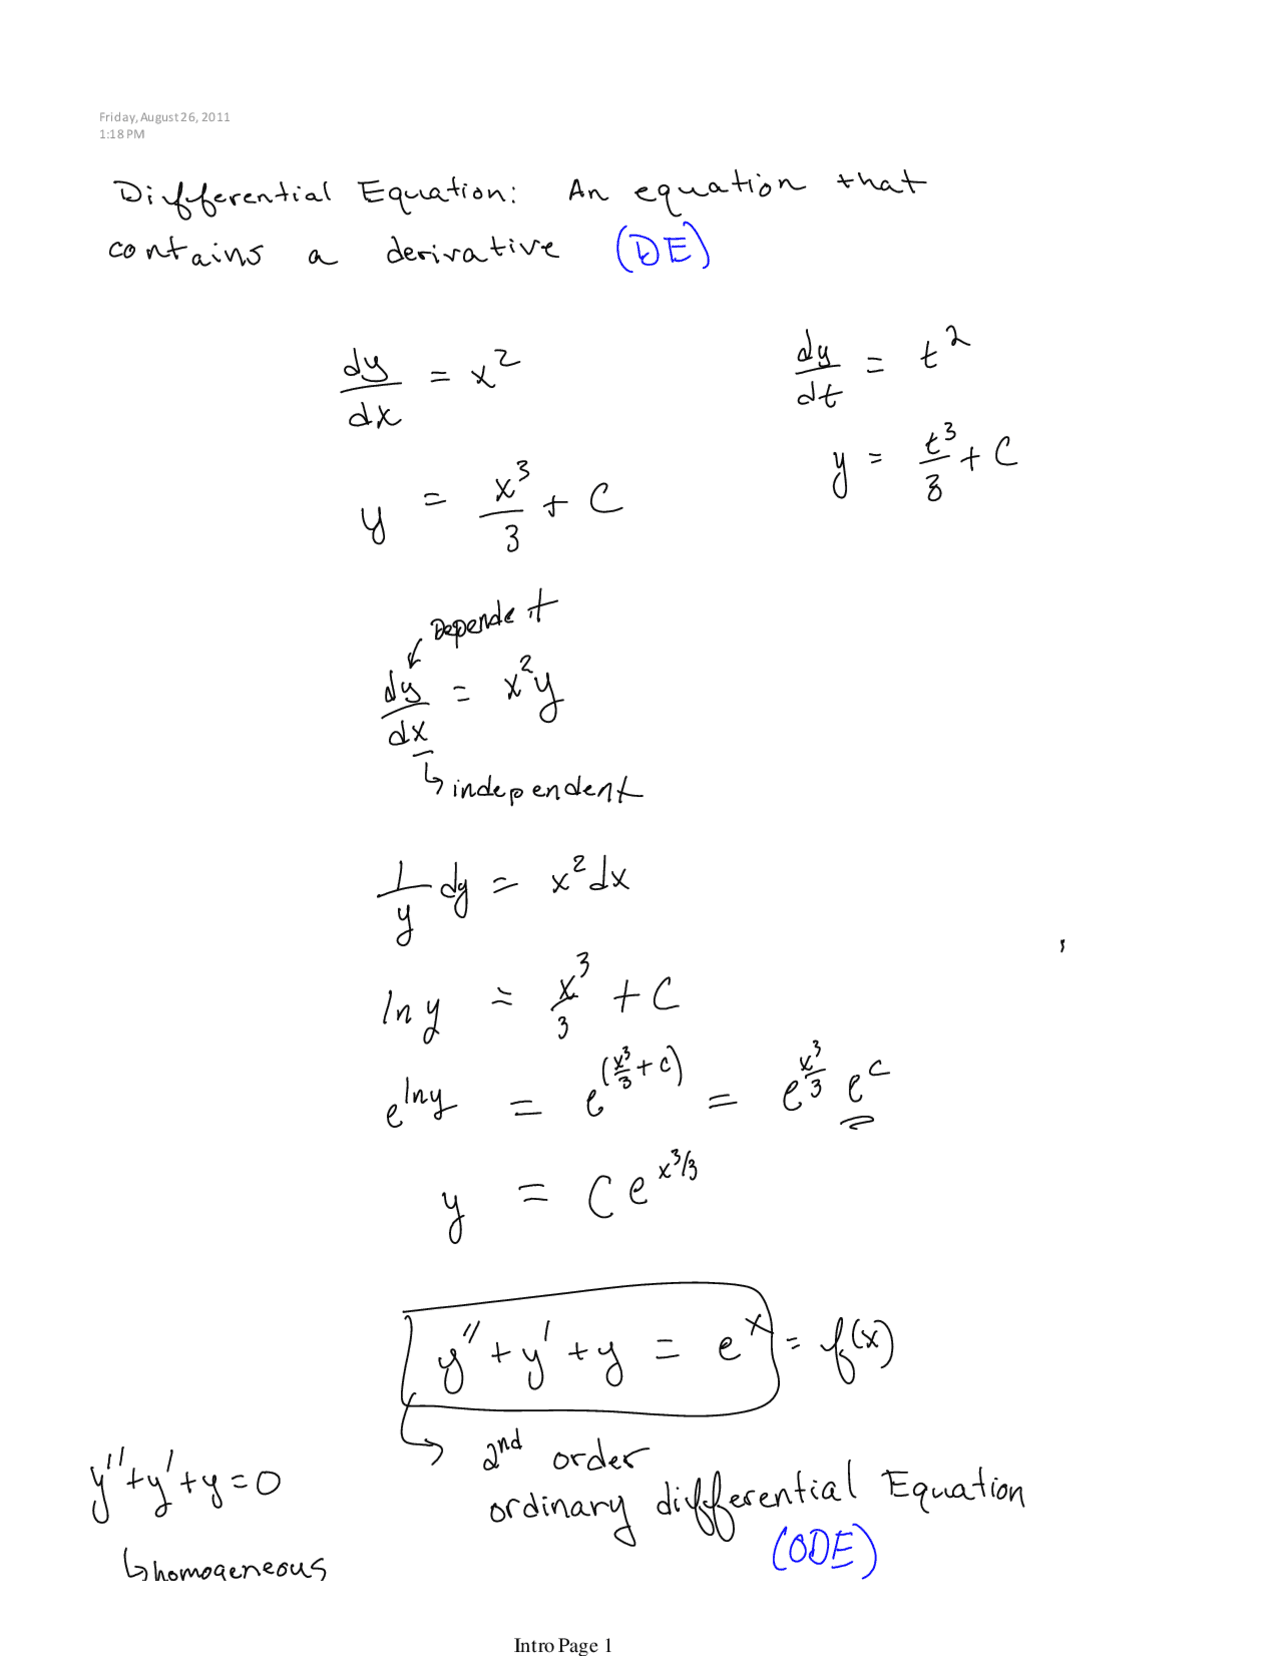 Friday, August 26, 2011
1:18 PM
Differential Equation: An equation that
contains a derivative (DE)
dy/dx = x²
dy/dt = t²
y = x³/3 + C
y = t³/3 + C
Dependet
dy/dx = x²y
independent
1/y dy = x² dx
ln y = x³/3 + C
e^(ln y) = e^(x³/3 + C) = e^(x³/3) e^C
y = C e^(x³/3)
y'' + y' + y = e^x = f(x)
2nd order
y'' + y' + y = 0
ordinary differential Equation
(ODE)
homogeneous
Intro Page 1